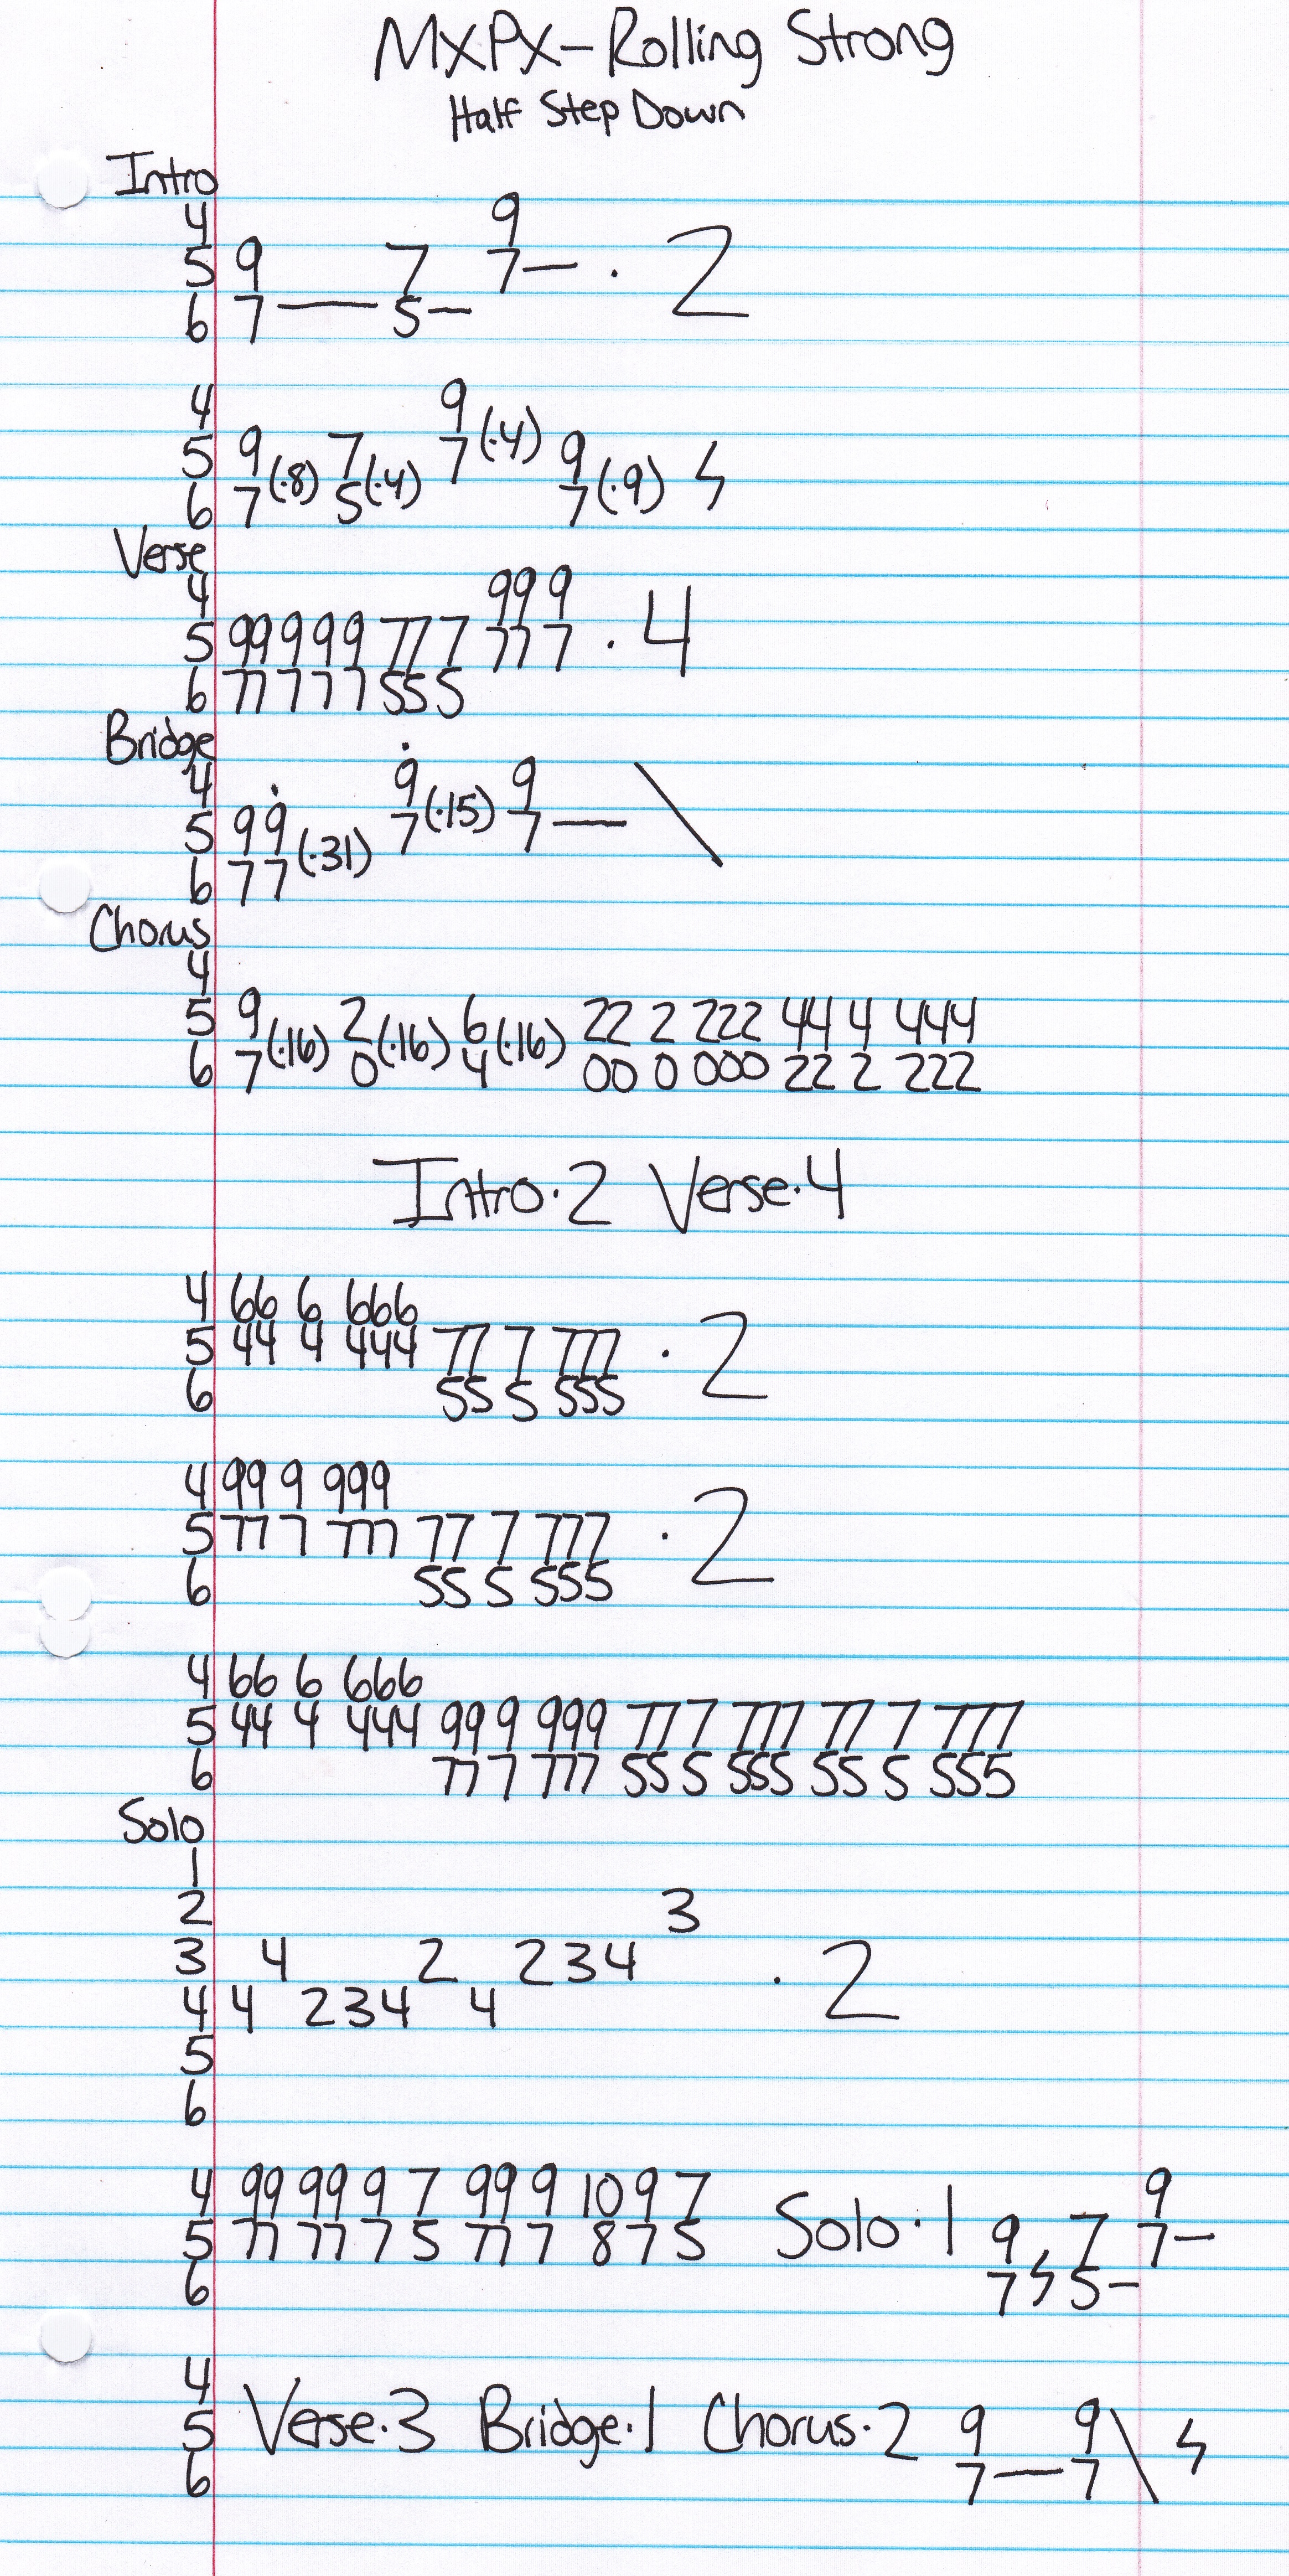 MXPX-Rolling Strong
Half Step Down
Intro
4 9
5 9 7 7— · 2
6 7— 5—
4 9
5 9 (·8) 7 (·4) 7 (·4) 9
6 7 5 7 (·9)
Verse
4 99 9
5 99 9 9 9 77 7 77 7 · 4
6 77 7 7 7 55 5
Bridge
4 9 9
5 9 9 7 (·15) 7— \
6 7 7 (·31)
Chorus
4
5 9 (·16) 2 (·16) 6 (·16) 22 2 222 44 4 444
6 7 0 4 00 0 000 22 2 222
Intro·2 Verse·4
4 66 6 666
5 44 4 444 77 7 777 · 2
6 55 5 555
4 99 9 999
5 77 7 777 77 7 777 · 2
6 55 5 555
4 66 6 666
5 44 4 444 99 9 999 77 7 777 77 7 777
6 77 7 777 55 5 555 55 5 555
Solo
1
2 3
3 4 2 234 · 2
4 4 234 4
5
6
4 99 99 9 7 99 9 10 9 7 9
5 77 77 7 5 77 7 8 7 5 Solo·1 9 7 7—
6 7 5—
4
5 Verse·3 Bridge·1 Chorus·2 9 9 \
6 7—7